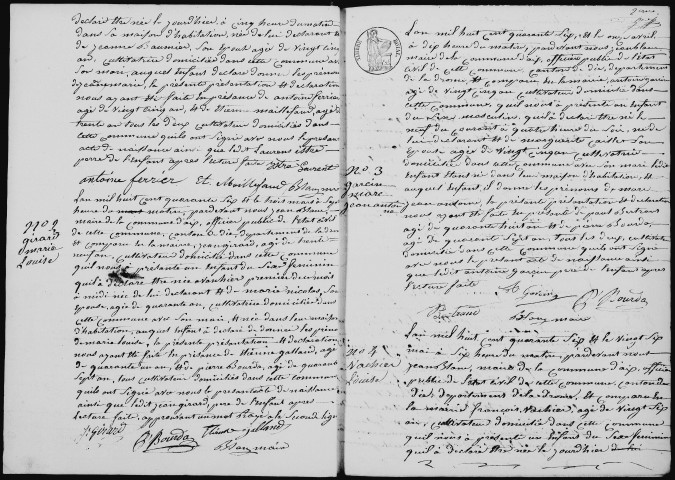 déclare être née le jourdhier, à cinq heure du matin
dans sa maison d'habitation, née de lui déclarant et
de jeanne Saunier, son épouse agé de vingt cinq
an, cultivatrice domiciliée dans cette commune avec
son mari, auquel enfant déclare donné les prénom
la présente présentation et déclaration
nous ayant été faite en présence de antoine ferrier
agé de vingt cinq an, et étienne maillefaud agé de
trente an tous les deux cultivateur domiciliés dans
cette commune qui ont signé avec nous le présent
acte de naissance ainsi que ledit Laurens
perre de l'enfant ayres lecture faite Laurent
antoine ferrier et Maillefaud Blanc maire
no 2
girard
marie
Louise
Lan mil huit cent quarante six et le trois mars à six
heure du matin, pardevant nous jean Blanc,
maire de la commune d'aix, officier public de l'état civil
de cette commune, canton de die, département de la drome
est comparu en la mairie, jean girard, agé de trente
neuf an, cultivateur domicilié dans cette commune
quil nous à présenté un enfant du Sexe feminin
quil à déclaré être née avanthier premier du mois
à midi née de lui déclarant et de marie nicolas, son
épouse, agé de quarante an, cultivatrice domiciliée dans
cette commune avec son mari, et née dans leur maison
d'habitation, auquel enfant à déclaré de donner les prénoms
de marie louise, la présente présentation et déclaration
nous ayant été faite en présence de étienne galland, agé
de quarante un an, et de pierre Bourda, agé de quarante
Sept an, tous cultivateur domiciliés dans cette commune
quils ont signé avec nous le présent acte de naissance
ainsi que ledit jean girard, perre de l'enfant ayres
lecture faite, approuvant un mot rayé à la Seconde ligne
J. Girard P. Bourda étienne galland
Blanc maire
no 3
jean antoine
Lan mil huit cent quarante Six, et le onze avril
à dix heure du matin, pardevant nous jean blanc
maire de la commune d'aix, officier public de l'état
civil de cette commune, canton de die, département
de la drome, est comparu en la mairie, antoine
agé de vingt cinq an cultivateur domicilié dans
cette commune, quil nous à présenté un enfant
du Sexe masculin, quil à déclaré être né le
neuf du courant à quatre heure du Soir, né de
lui déclarant et de marguerite Caillet Son
épouse, agé de vingt cinq an cultivatrice
domiciliée dans cette commune avec son mari ledit
enfant étant né dans leur maison d'habitation, et
auquel enfant, il donne les prénoms de
jean antoine, la présente présentation et déclaration
nous ayant été faite en présence de paul Bertrand
agé de quarante huit an et pierre Bourda,
agé de quarante Sept an, tous les deux, cultivateur
domiciliés dans cette commune quils ont Signé
avec nous le présent acte de naissance ainsi
que ledit antoine perre de l'enfant ayres
lecture faite
P. Bourda
Bertrand
Blanc maire
no 4
Vachier
Louise
Lan mil huit cent quarante Six et le Vingt Six
mai à Six heure du matin, pardevant nous
jean Blanc, maire de la commune d'aix, officier
public de l'état civil de cette commune, canton de
die, département de la drome, est comparu en
la mairie françois Vachier, agé de Vingt Six
an, cultivateur domicilié dans cette commune
quil nous à présenté un enfant du Sexe feminin
quil à déclaré être née le jourdhier